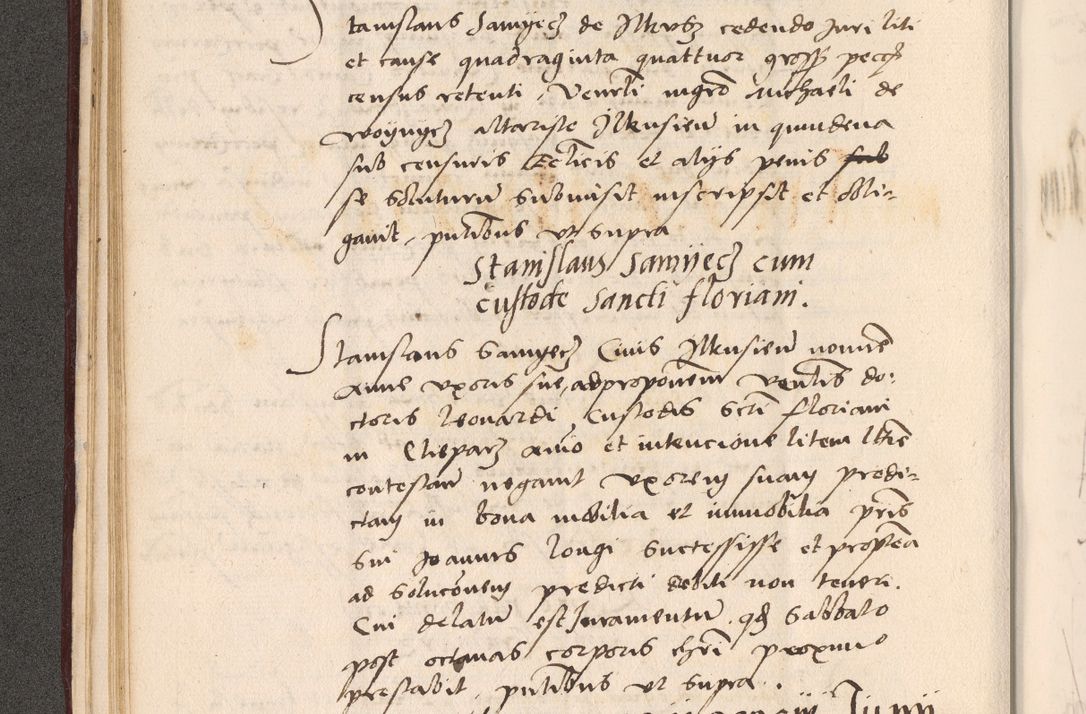 Stanislaus Samyecz de Ilkusz cedendo Juri liti
et cause quadraginta quattuor gross pecc
census retenti, Venerli mgro Michaeli de
woynycz altariste Ilkusien in quindena
sub censuris Ecclicis et alijs penis sub
se soluturu submisit inscripsit et obli-
gavit, pntibus ut supra
Stanislaus Samyecz cum
Custode Sancti floriani.
Stanislaus Samyecz Civis Ilkusien nomine
Anne uxoris sue, ad proponem venlis do-
ctoris leonardi Custodis Scti floriani
in Cleparz animo et intencione litem ltime
contestan negavit uxorem suam predi-
ctam in bona mobilia et immobilia pris
sui Joannis longi successisse et propterea
ad solucionem predicti debiti non teneri.
Cui delatum est Juramentum, qd Sabbato
post octavas corporis chri proximo
prestabit, pntibus ut supra.
Junij